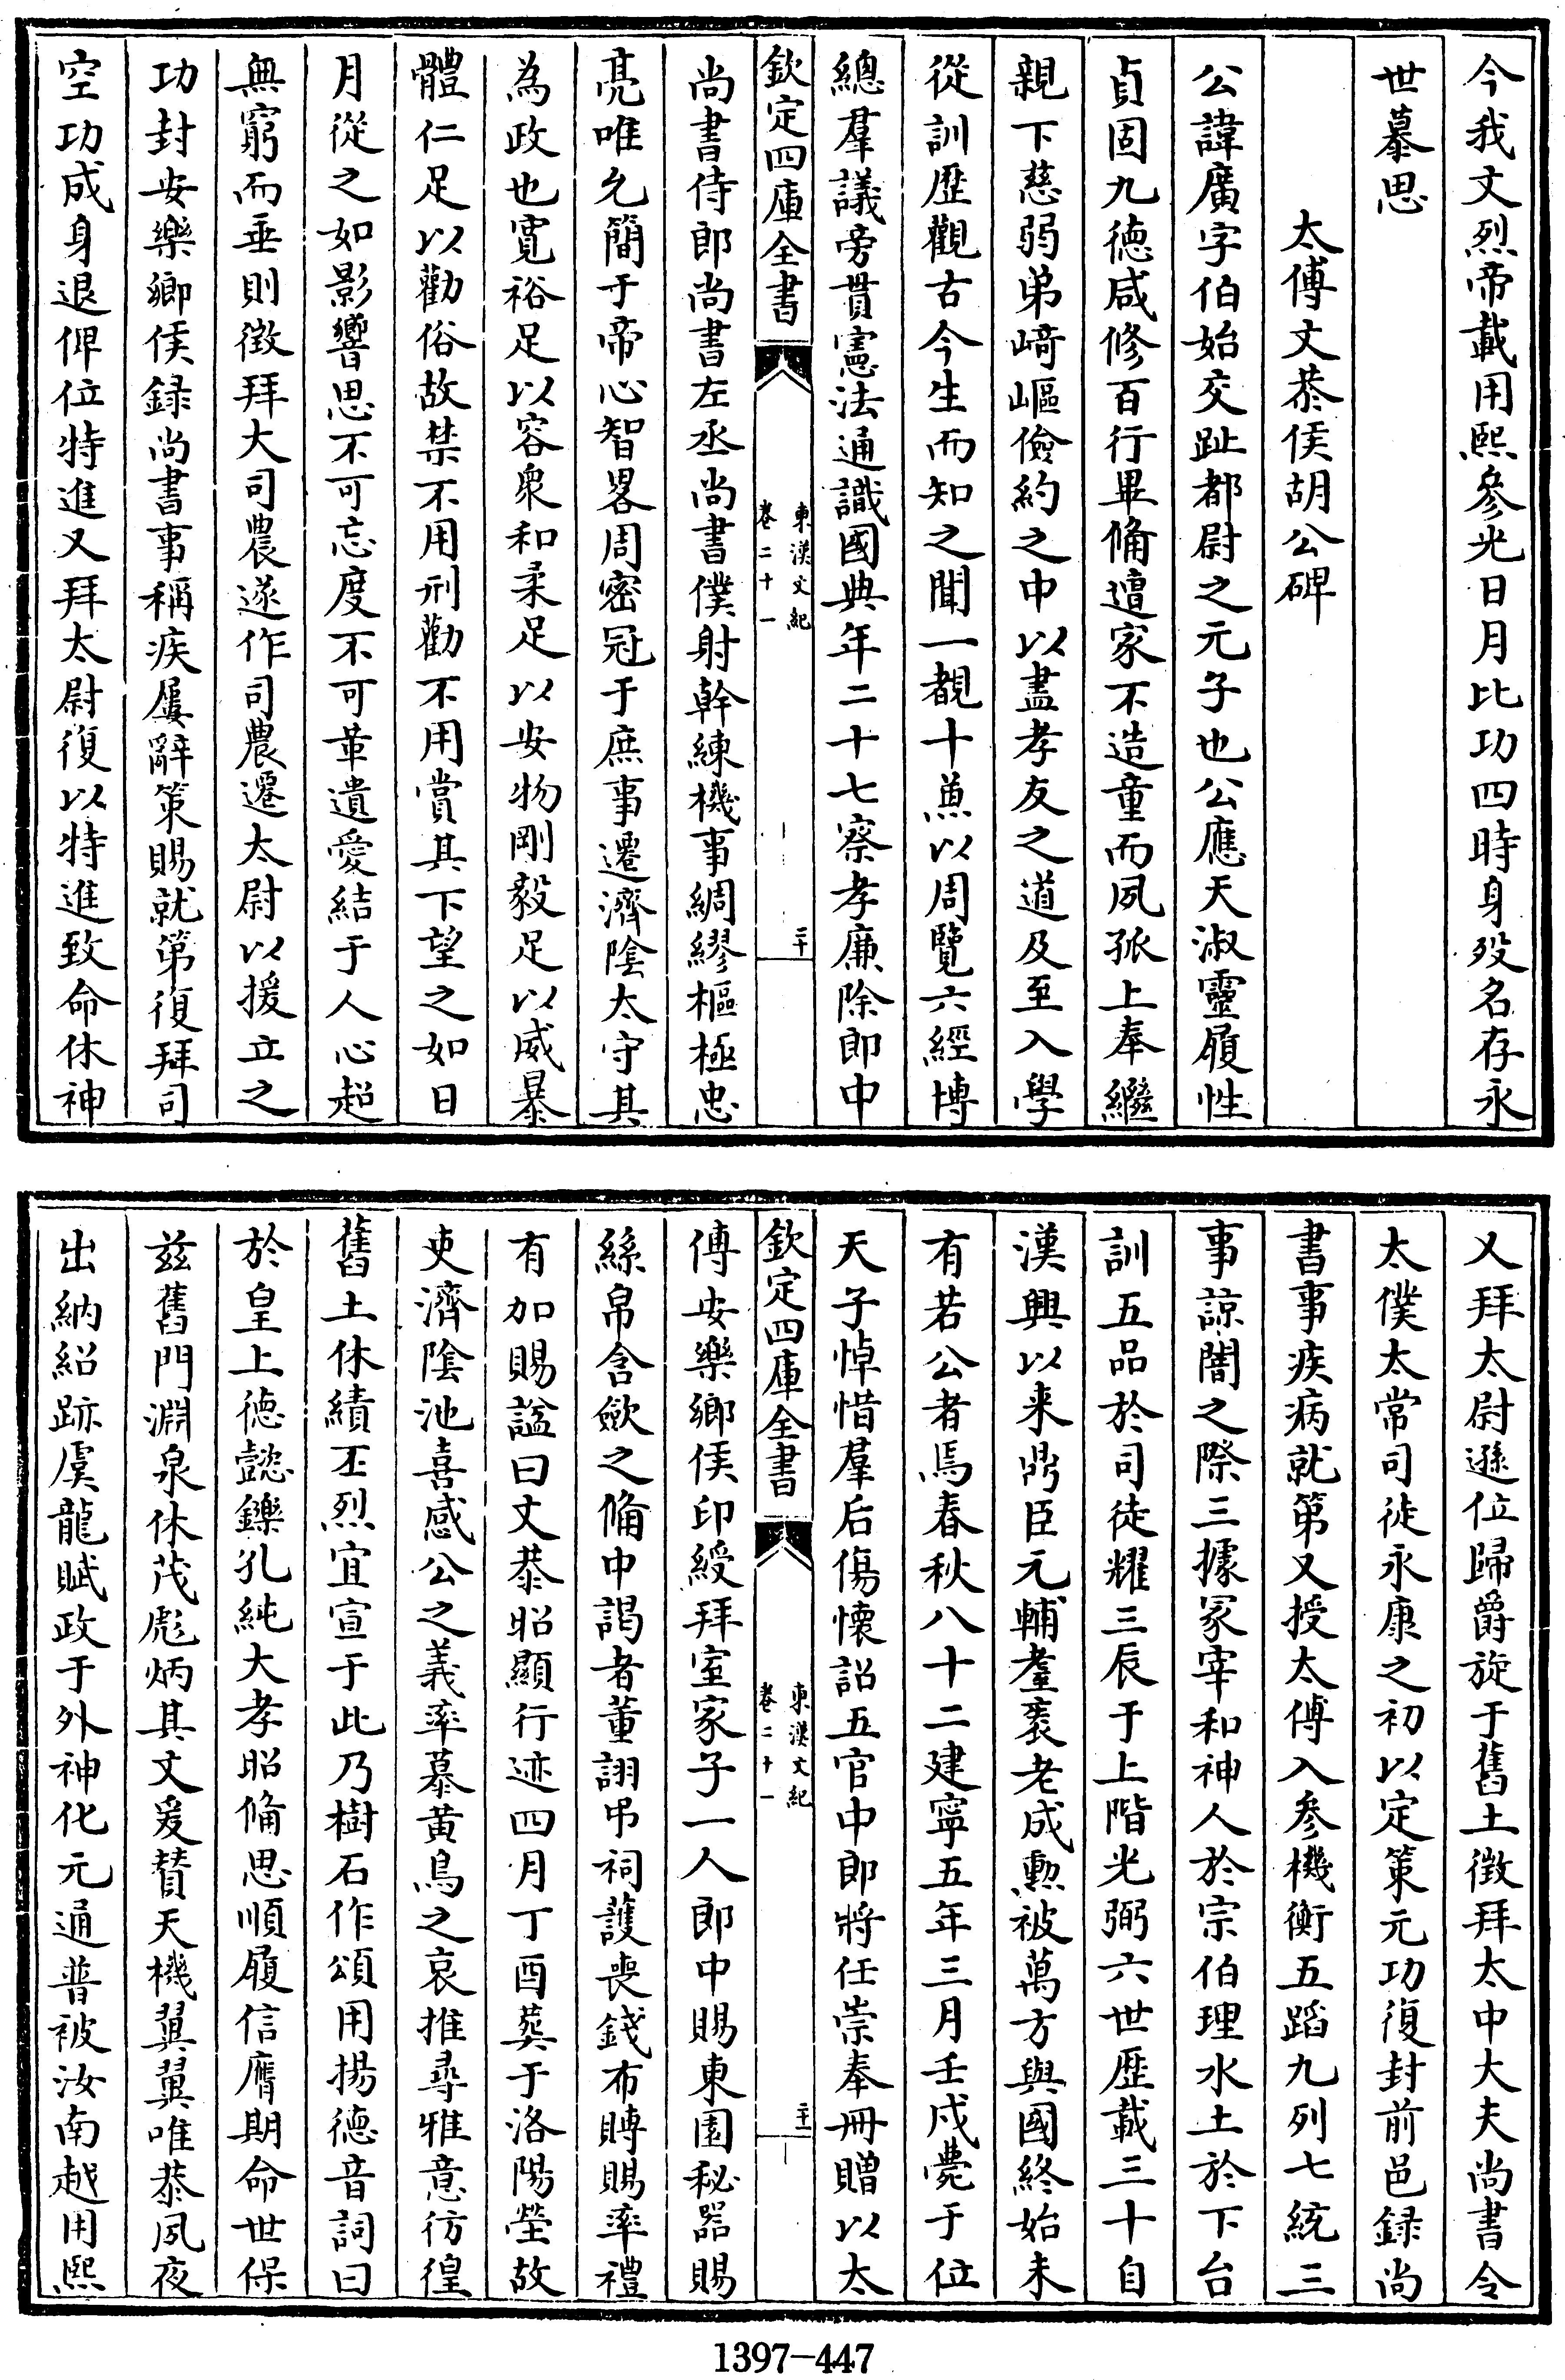 今我文烈帝載用熙參光日月比功四時身殁名存永
世慕思
太傅文恭侯胡公碑
公諱廣字伯始交趾都尉之元子也公應天淑靈履性
貞固九德咸修百行畢備遭家不造童而夙孤上奉繼
親下慈弱弟崎嶇儉約之中以盡孝友之道及至入學
從訓歴觀古今生而知之聞一覩十兼以周覽六經博
總羣議旁貫憲法通識國典年二十七察孝廉除郎中
欽定四庫全書
東漢文紀
卷二十一
二十
尚書侍郎尚書左丞尚書僕射幹練機事綢繆樞極忠
亮唯允簡于帝心智畧周密冠于庶事遷濟隂太守其
為政也寛裕足以容衆和柔足以安物剛毅足以威暴
體仁足以勸俗故禁不用刑勸不用賞其下望之如日
月從之如影響思不可忘度不可革遺愛結于人心超
無窮而垂則徴拜大司農遂作司農遷太尉以援立之
功封安樂鄉侯録尚書事稱疾屢辭策賜就第復拜司
空功成身退俾位特進又拜太尉復以特進致命休神
又拜太尉遜位歸爵旋于舊土徴拜太中大夫尚書令
太僕太常司徒永康之初以定策元功復封前邑録尚
書事疾病就第又授太傅入參機衡五蹈九列七統三
事諒闇之際三據冢宰和神人於宗伯理水土於下台
訓五品於司徒耀三辰于上階光弼六世歴載三十自
漢興以来鼎臣元輔耋耄老成勲被萬方與國終始未
有若公者焉春秋八十二建寧五年三月壬戌薨于位
天子悼惜羣后傷懷詔五官中郎將任崇奉冊贈以太
欽定四庫全書
東漢文紀
卷二十一
二十一
傅安樂鄉侯印綬拜室家子一人郎中賜東園秘器賜
絲帛含歛之備中謁者董詡弔祠護喪錢布賻賜率禮
有加賜諡曰文恭昭顯行迹四月丁酉葬于洛陽塋故
吏濟隂池喜感公之義率慕黄鳥之哀推尋雅意彷徨
舊土休績丕烈宜宣于此乃樹石作頌用揚德音詞曰
於皇上德懿鑠孔純大孝昭備思順履信膺期命世保
兹舊門淵泉休茂彪炳其文爰贊天機翼翼唯恭夙夜
出納紹跡虞龍賦政于外神化元通普被汝南越用熙
1397-447